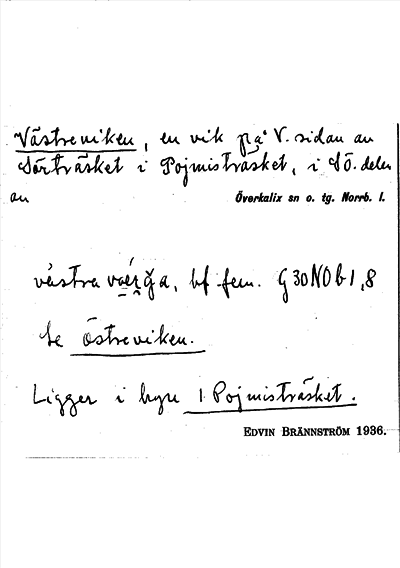 Västreviken, en vik på V. sidan av
Sörträsket i Pojmisträsket, i SÖ. delen
av Överkalix sn o. tg. Norrb. l.
västra, bf fem. G30NOb1,8
Se Östreviken.
Ligger i byn 1 Pojmisträsket.
EDVIN BRÄNNSTRÖM 1936.